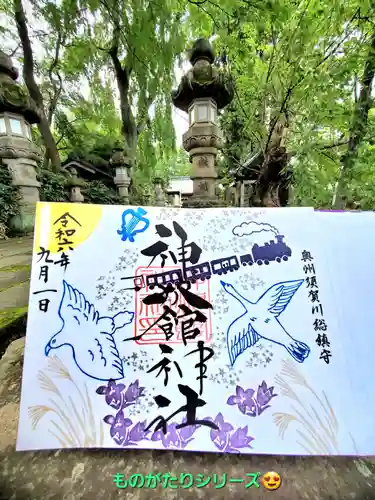 奥州須賀川総鎮守
神炊館神社
令和六年
九月一日
ものがたりシリーズ😍